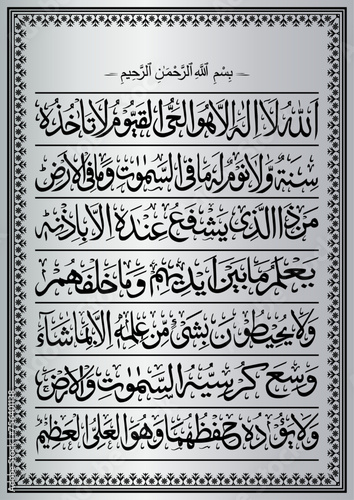 بِسْمِ ٱللَّهِ ٱلرَّحْمَٰنِ ٱلرَّحِيمِ
اَللّٰهُ لَا اِلٰهَ اِلَّا هُوَ الْحَىُّ الْقَيُّومُ لَا تَاْخُذُهُ
سِنَةٌ وَلَا نَوْمٌ لَهُ مَا فِى السَّمٰوٰتِ وَمَا فِى الْاَرْضِ
مَنْ ذَا الَّذٖى يَشْفَعُ عِنْدَهُ اِلَّا بِاِذْنِهٖ
يَعْلَمُ مَا بَيْنَ اَيْدٖيهِمْ وَمَا خَلْفَهُمْ
وَلَا يُحٖيطُونَ بِشَىْءٍ مِنْ عِلْمِهٖ اِلَّا بِمَا شَاءَ
وَسِعَ كُرْسِيُّهُ السَّمٰوٰتِ وَالْاَرْضَ
وَلَا يَؤُدُهُ حِفْظُهُمَا وَهُوَ الْعَلِىُّ الْعَظٖيمُ
Adobe Stock | #756401138